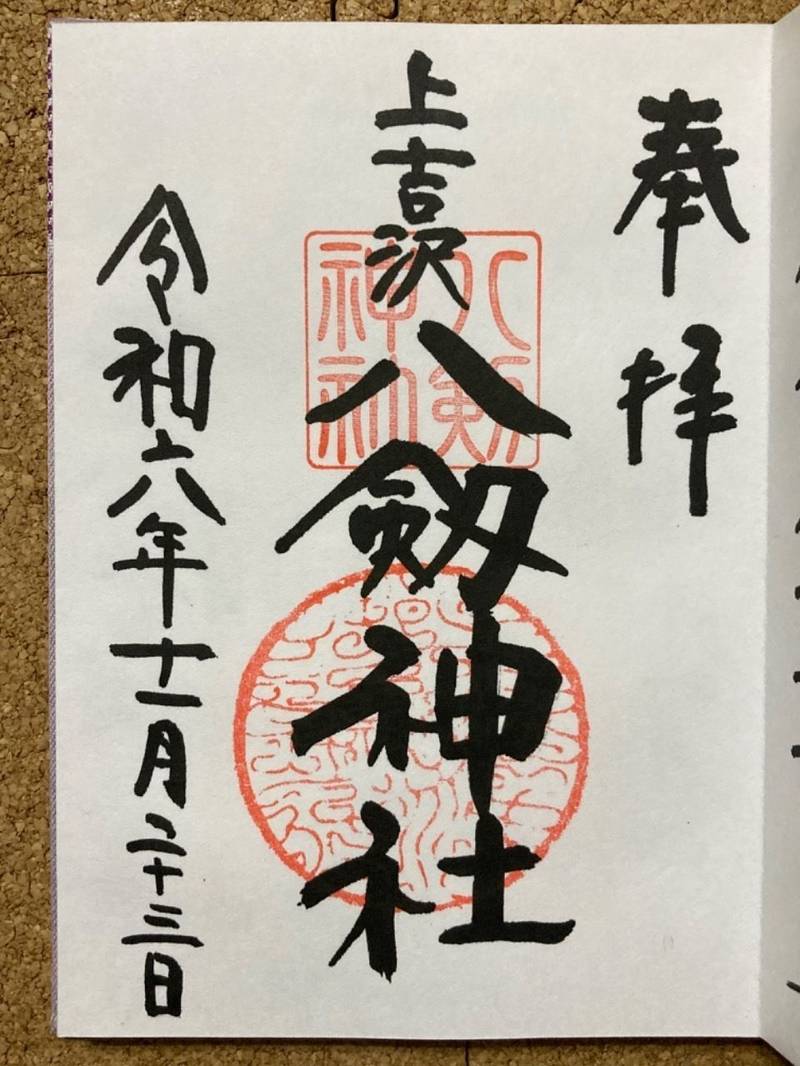 奉拝
上吉沢
八劔神社
令和六年十一月二十三日
八剱神社